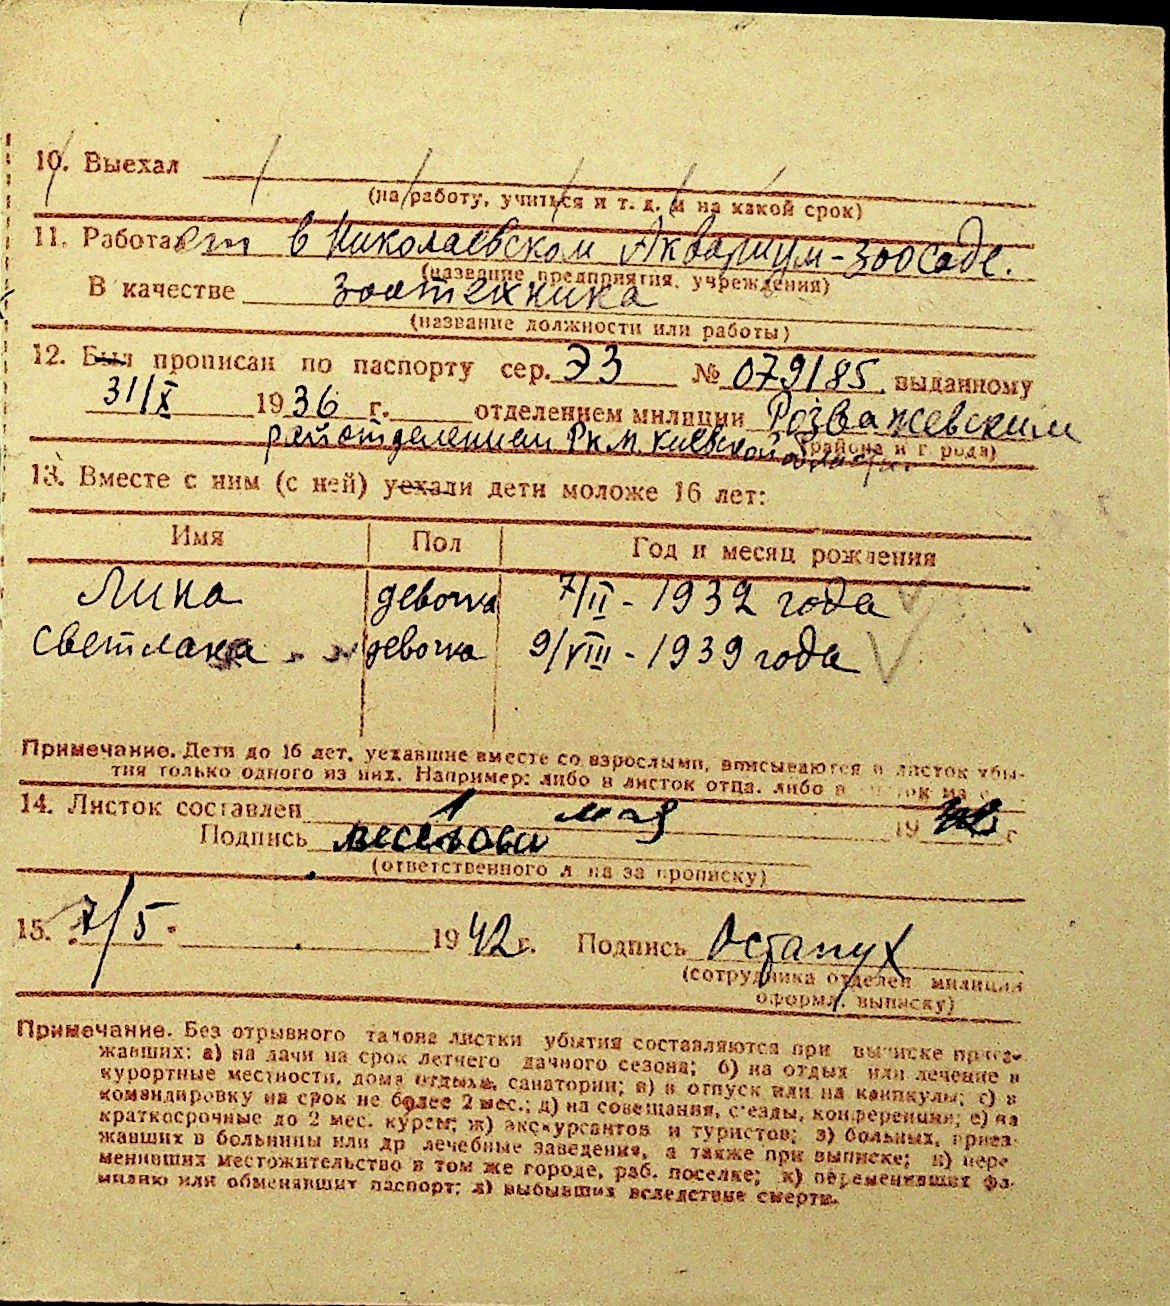 10. Выехал
(на работу, учиться и т. д. и на какой срок)
11. Работает в Николаевском Аквариум-зоосаде.
(название предприятия, учреждения)
В качестве зоотехника
(название должности или работы)
12. Был прописан по паспорту сер. ЭЗ № 079185 выданному
31/X 1936 г. отделением милиции Розважевским
райотделением Р.К.М. Киевской области.
(района и города)
13. Вместе с ним (с ней) уехали дети моложе 16 лет:
Имя Пол Год и месяц рождения
Лина девочка 7/II - 1932 года
Светлана девочка 9/VIII - 1939 года
Примечание. Дети до 16 лет, уехавшие вместе со взрослыми, вписываются в листок убы-
тия только одного из них. Например: либо в листок отца, либо в листок ма
14. Листок составлен 1 мая 1942 г
Подпись
(ответственного л на за прописку)
15. 7/5. 1942 г. Подпись Остапух
(сотрудника отделен милиции
оформл. выписку)
Примечание. Без отрывного талона листки убытия составляются при выписке приез-
жавших: а) на дачи на срок летнего дачного сезона; б) на отдых или лечение в
курортные местности, дома отдыха, санатории; в) в отпуск или на каникулы; г) в
командировку на срок не более 2 мес.; д) на совещания, с'езды, конференции; е) на
краткосрочные до 2 мес. курсы; ж) экскурсантов и туристов; з) больных, приез-
жавших в больницы или др лечебные заведения, а также при выписке; и) пере-
менивших местожительство в том же городе, раб. поселке; к) переменивших фа-
милию или обменявших паспорт; л) выбывших вследствие смерти.